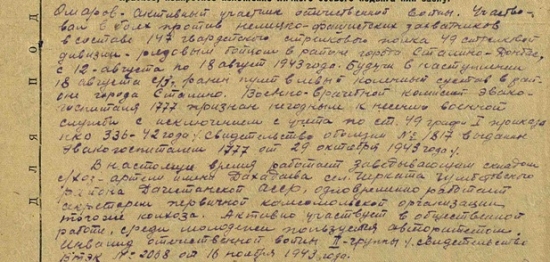 Омаров - активный участник отечественной войны. Участво-
вал в боях против немецко-фашистских захватчиков
в составе 147 гвардейского стрелкового полка 49 стрелковой
дивизии - рядовым бойцом в районе города Сталино - Донбас,
с 12 августа по 18 август 1943 года. Будучи в наступлении
18 августа с/г. ранен пулей в левый коленный сустав в рай-
оне города Сталино. Военно-врачебной комиссией эвако-
госпиталя 1777 признан негодным к несению военной
службы с исключением с учета по ст. 49 граф-I приказа
НКО 336-42 году. Свидетельство о болезни № 2/817 выдан
Эвакогоспиталем 1777 от 29 октября 1943 году.
В настоящее время работает заведывающим складом
с/хоз-артели имени Дахадаева сел. Чирката Гумбетовского
района Дагестанской АССР, одновременно работает
секретарем первичной комсомольской организации
того же колхоза. Активно участвует в общественной
работе, среди молодежи пользуется авторитетом.
Инвалид отечественной войны II-группы, свидетельство
ВТЭК № 2068 от 16 ноября 1943 года.
Д Л Я П О Д